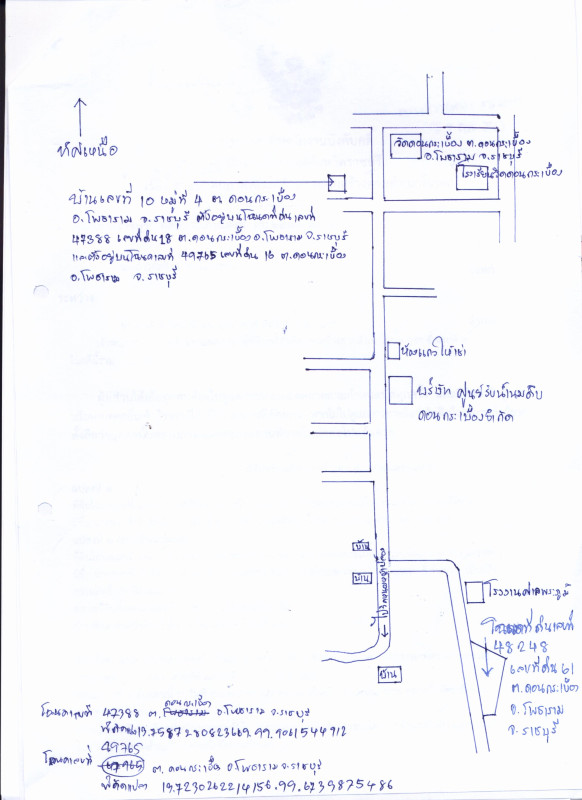 ทิศเหนือ
วัดดอนกระเบื้อง ต.ดอนกระเบื้อง
อ.โพธาราม จ.ราชบุรี
โรงเรียนวัดดอนกระเบื้อง
บ้านเลขที่ 10 หมู่ที่ 4 ต ดอนกระเบื้อง
อ.โพธาราม จ.ราชบุรี ตั้งอยู่บนโฉนดที่ดินเลขที่
47388 เลขที่ดิน 18 ต.ดอนกระเบื้อง อ.โพธาราม จ.ราชบุรี
และตั้งอยู่บนโฉนดเลขที่ 49765 เลขที่ดิน 16 ต.ดอนกระเบื้อง
อ.โพธาราม จ.ราชบุรี
ห้องแถวให้เช่า
บริษัท ศูนย์รับน้ำนมดิบ
ดอนกระเบื้องจำกัด
บ้าน
บ้าน
บ้าน
โรงงานศาลพระภูมิ
ที่ดินเลขที่
48248
เลขที่ดิน 61
ต.ดอนกระเบื้อง
อ.โพธาราม
จ.ราชบุรี
โฉนดเลขที่ 47388 ต. ดอนกระเบื้อง อ.โพธาราม จ.ราชบุรี
49765
โฉนดเลขที่ ต. ดอนกระเบื้อง อ.โพธาราม จ.ราชบุรี
พิกัดแปลง 13.7230262214156.99.6739875486